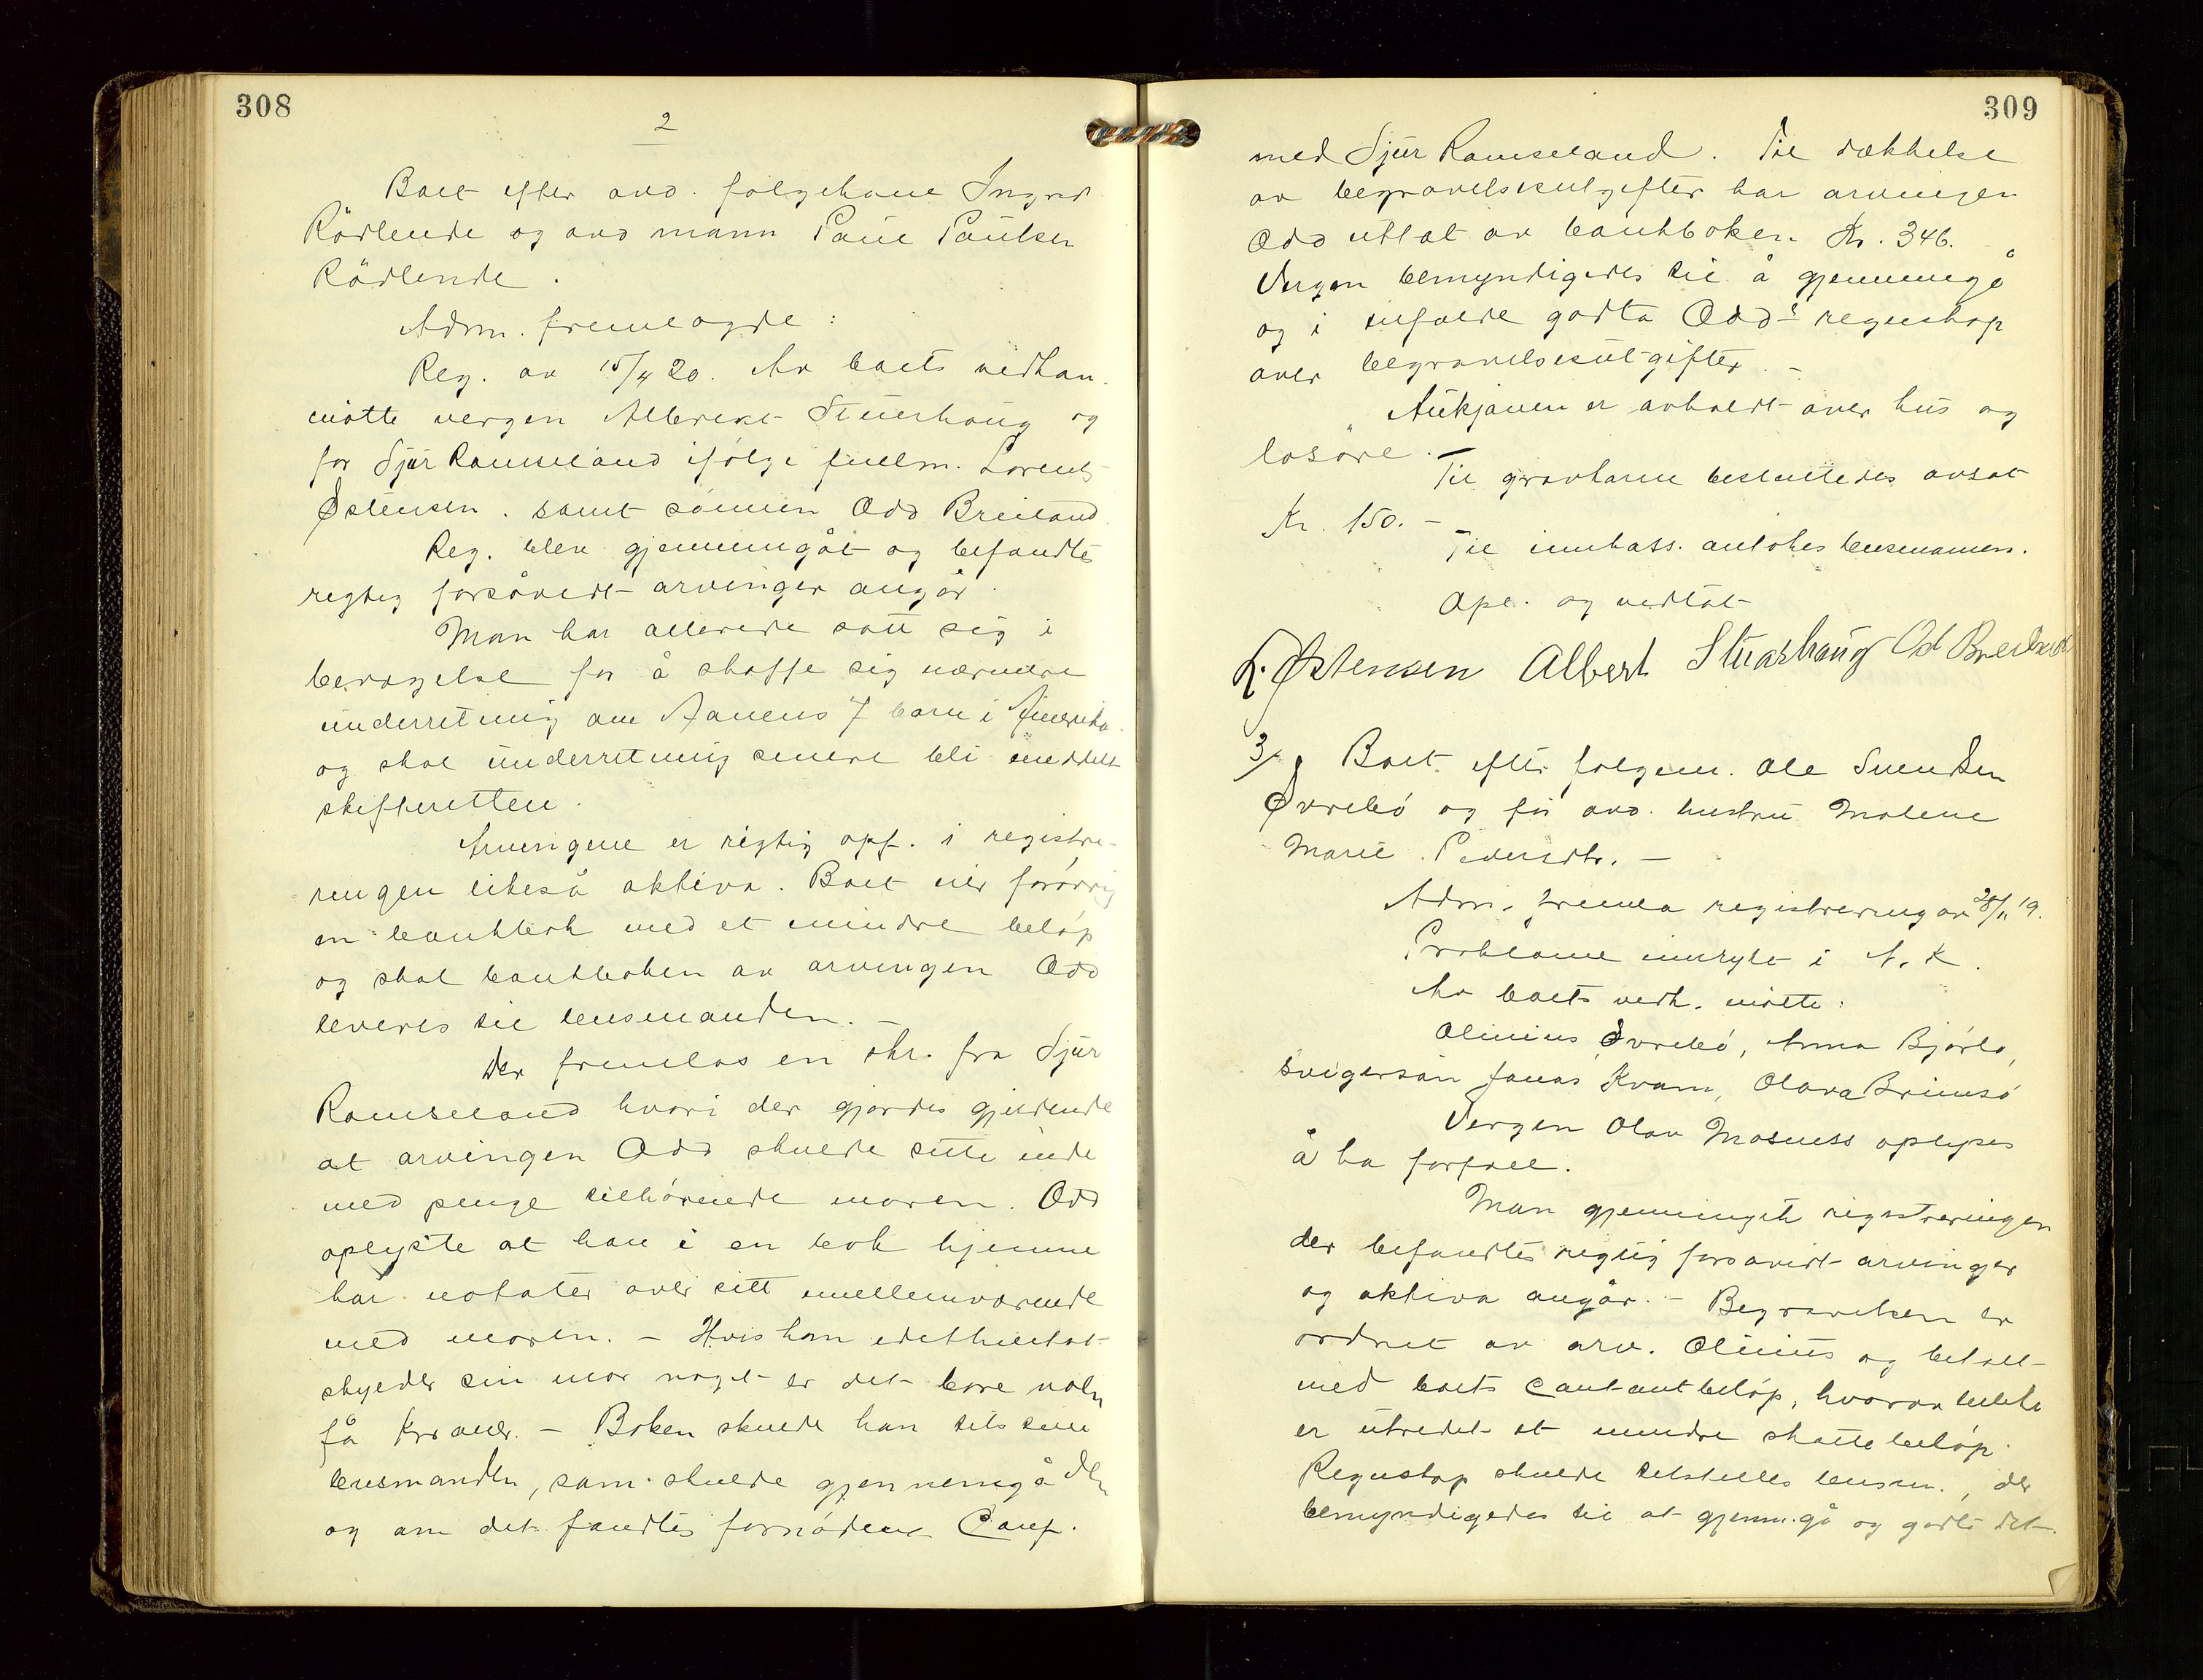 308
2
Boet efter avd. følgekone Ingrid
Rödlende og avd mann Paul Paulsen
Rödlende.
Adm. fremlagde:
Reg. av 15/4 20. Av boets vedkom.
møtte vergen Albrikt Stuerhaug og
for Sjur Ramsland ifølge fullm. Lorents
Østensen. samt sønnen Odd Breiland.
Reg. blev gjennemgåt og befandtes
regtig forsåvidt arvinger angår.
Man har allerede satt sig i
bevægelse for å skaffe sig nærmere
underretning om Aanens 7 barn i Amerika
og skal underretning senere bli meddelt
skifteretten.
Arvingene er rigtig opf. i registre-
ringen likeså aktiva. Boet eier forøvrig
en bankbok med et mindre beløp
og skal bankboken av arvingen Odd
leveres til lensmanden. –
Der fremlas en skr. fra Sjur
Ramsland hvori der gjordes gjeldende
at arvingen Odd skulde sitte inde
med penge tilhørende moren. Odd
oplyste at han i en bok hjemme
har notater over sitt mellemværende
med moren. – Hvis han idetheletat
skylder sin mor noget er det bare nokn
få Kroner. – Boken skulde han tilstille
lensmanden, som skulde gjennemgå den
og om det fandtes fornødent Conf.
309
med Sjur Ramsland. Til dækkelse
av begravelsesutgifter har arvingen
Odd uttat av bankboken Kr. 346. –
Vergen bemyndigedes til å gjennemgå
og i tilfælde godta Odd's regnskap
over begravelsesutgifter. –
Auksjonen er avholdt over hus og
løsöre.
Til gravkarm besluttedes avsat
Kr. 150. –
Til innkass. antokes lensmannen.
Opl. og vedtat
L. Østensen Albert Stuarhaug Od Breiland
3/ Boet efter følgem. Ole Svendsen
Øvrebø og før avd. hustru Malene
Marie Pedersdtr. –
Adm. fremla registrering av 28/11 19.
Proklama innrykt i N. K.
Av boets vedk. møtte:
Olinius Øvrebø, Anna Bjørlo,
Svigersøn Jonas Kvam, Olava Brimsø
Vergen Olav Mosness oplyses
å ha forfall.
Man gjennemgik registreringen
der befandtes regtig forsåvidt arvinger
og aktiva angår. – Begravelsen er
ordnet av arv. Olinius og betalt
med boets Contantbeløp, hvorav likeledes
er utredet et mindre skattebeløp.
Regnskap skulde tilstilles lensm., der
bemyndigedes til at gjenm.gå og godta det.